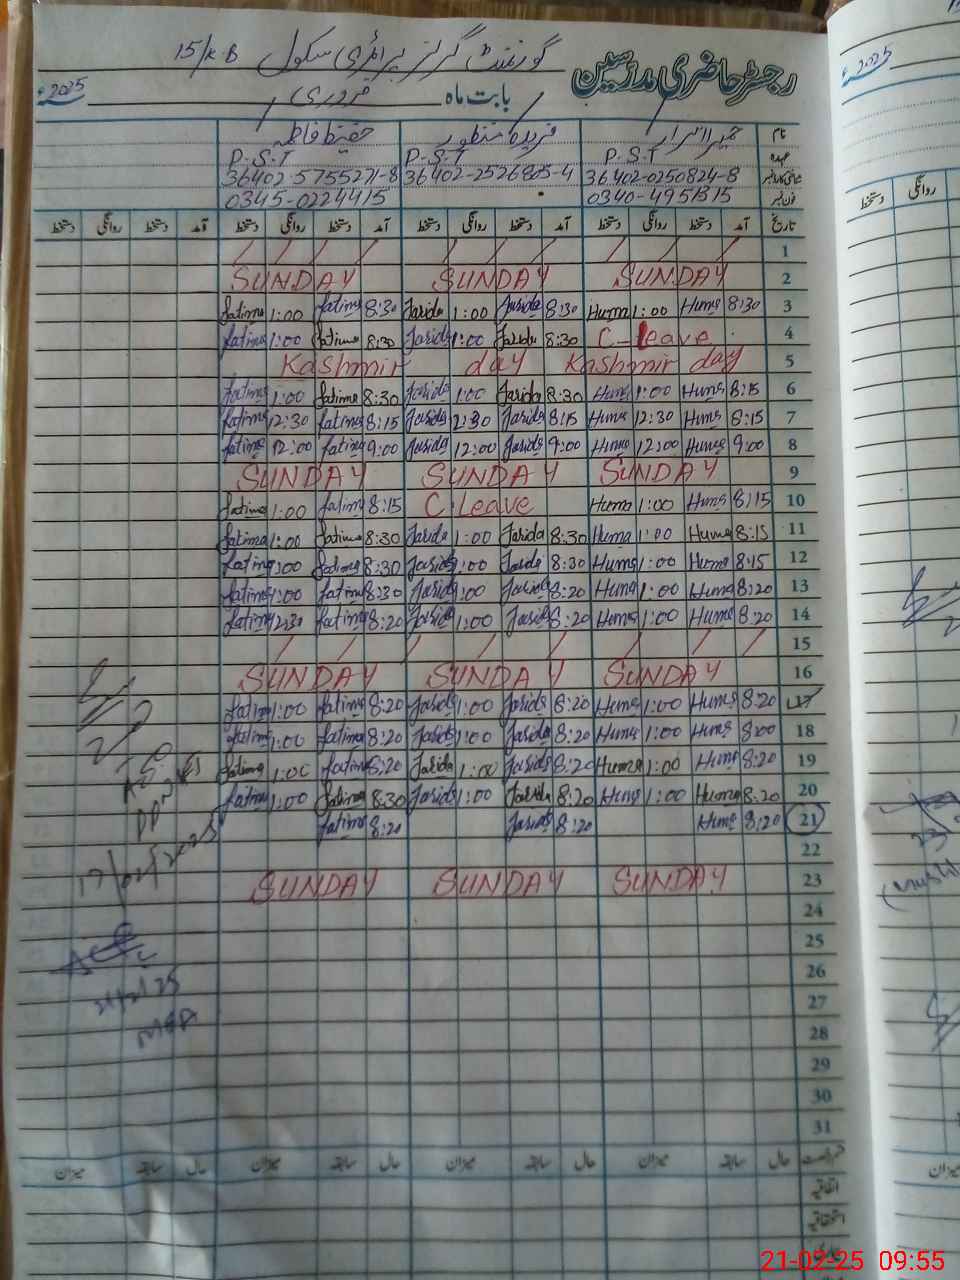 گورنمنٹ گرلز پرائمری سکول 15/KB
رجسٹر حاضری مدرسین
بابت ماہ فروری 2025ء
نام حمیرا فریدہ منظور حفیظ فاطمہ
عہدہ P.S.T P.S.T P.S.T
شناختی کارڈ نمبر 36402-0250824-8 36402-2526805-4 36402-5755271-8
فون نمبر 0345-0224415
تاریخ آمد دستخط روانگی دستخط آمد دستخط روانگی دستخط آمد دستخط روانگی دستخط آمد دستخط روانگی دستخط
1
SUNDAY SUNDAY SUNDAY 2
Fatima 1:00 Fatima 8:30 Farida 1:00 Farida 8:30 Huma 1:00 Huma 8:30 3
Fatima 1:00 Fatima 8:30 Farida 1:00 Farida 8:30 C-Leave 4
Kashmir day Kashmir day 5
Fatima 1:00 Fatima 8:30 Farida 1:00 Farida 8:30 Huma 1:00 Huma 8:15 6
Fatima 12:30 Fatima 8:15 Farida 12:30 Farida 8:15 Huma 12:30 Huma 8:15 7
Fatima 12:00 Fatima 9:00 Farida 12:00 Farida 9:00 Huma 12:00 Huma 9:00 8
SUNDAY SUNDAY SUNDAY 9
Fatima 1:00 Fatima 8:15 C.Leave Huma 1:00 Huma 8:15 10
Fatima 1:00 Fatima 8:30 Farida 1:00 Farida 8:30 Huma 1:00 Huma 8:15 11
Fatima 1:00 Fatima 8:30 Farida 1:00 Farida 8:30 Huma 1:00 Huma 8:15 12
Fatima 1:00 Fatima 8:30 Farida 1:00 Farida 8:20 Huma 1:00 Huma 8:20 13
Fatima 12:30 Fatima 8:20 Farida 1:00 Farida 8:20 Huma 1:00 Huma 8:20 14
15
SUNDAY SUNDAY SUNDAY 16
Fatima 1:00 Fatima 8:20 Farida 1:00 Farida 8:20 Huma 1:00 Huma 8:20 17
Fatima 1:00 Fatima 8:20 Farida 1:00 Farida 8:20 Huma 1:00 Huma 8:00 18
Fatima 1:00 Fatima 8:20 Farida 1:00 Farida 8:20 Huma 1:00 Huma 8:20 19
Fatima 1:00 Fatima 8:30 Farida 1:00 Farida 8:20 Huma 1:00 Huma 8:20 20
Fatima 8:20 Farida 8:20 Huma 8:20 21
22
SUNDAY SUNDAY SUNDAY 23
17/02/2025
24
25
26
27
28
29
30
31
حال سابقہ میزان حال سابقہ میزان حال سابقہ میزان حال سابقہ میزان
اتفاقیہ
استحقاقیہ
21-02-25 09:55